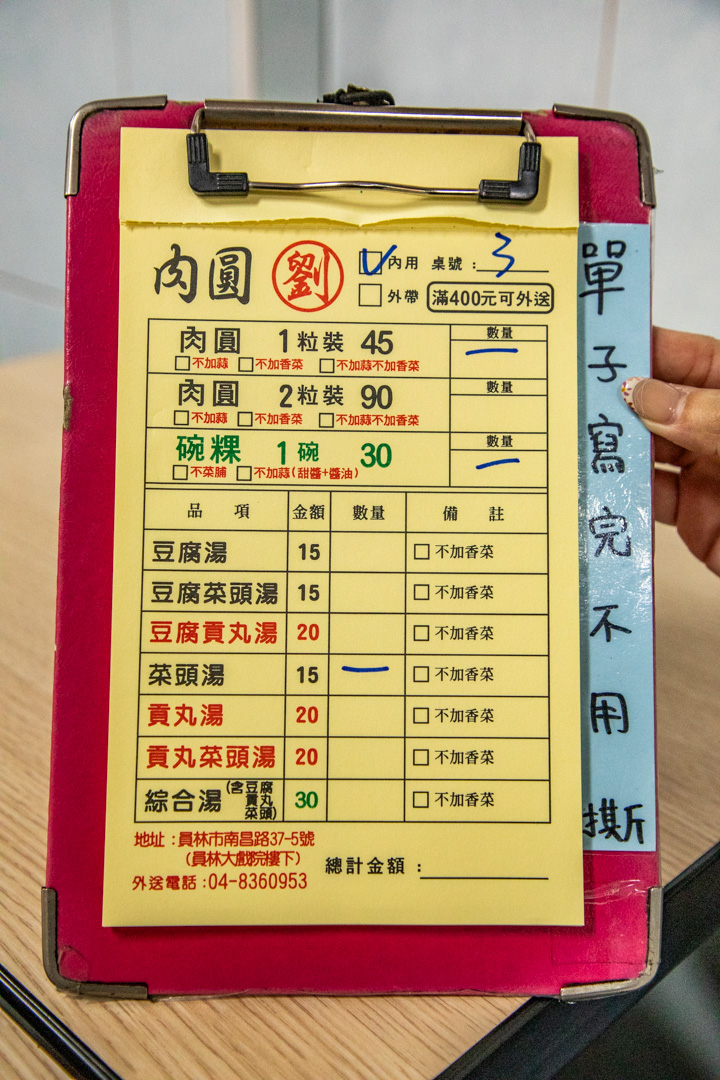 肉圓 劉 ☑內用 桌號：3
☐外帶 滿400元可外送
肉圓 1粒裝 45 數量 一
☐不加蒜 ☐不加香菜 ☐不加蒜不加香菜
肉圓 2粒裝 90 數量
☐不加蒜 ☐不加香菜 ☐不加蒜不加香菜
碗粿 1碗 30 數量 一
☐不菜脯 ☐不加蒜(甜醬+醬油)
品項 金額 數量 備註
豆腐湯 15 ☐不加香菜
豆腐菜頭湯 15 ☐不加香菜
豆腐貢丸湯 20 ☐不加香菜
菜頭湯 15 一 ☐不加香菜
貢丸湯 20 ☐不加香菜
貢丸菜頭湯 20 ☐不加香菜
綜合湯(含豆腐貢丸菜頭) 30 ☐不加香菜
地址：員林市南昌路37-5號
(員林大戲院樓下)
外送電話：04-8360953
總計金額：
單子寫完不用撕